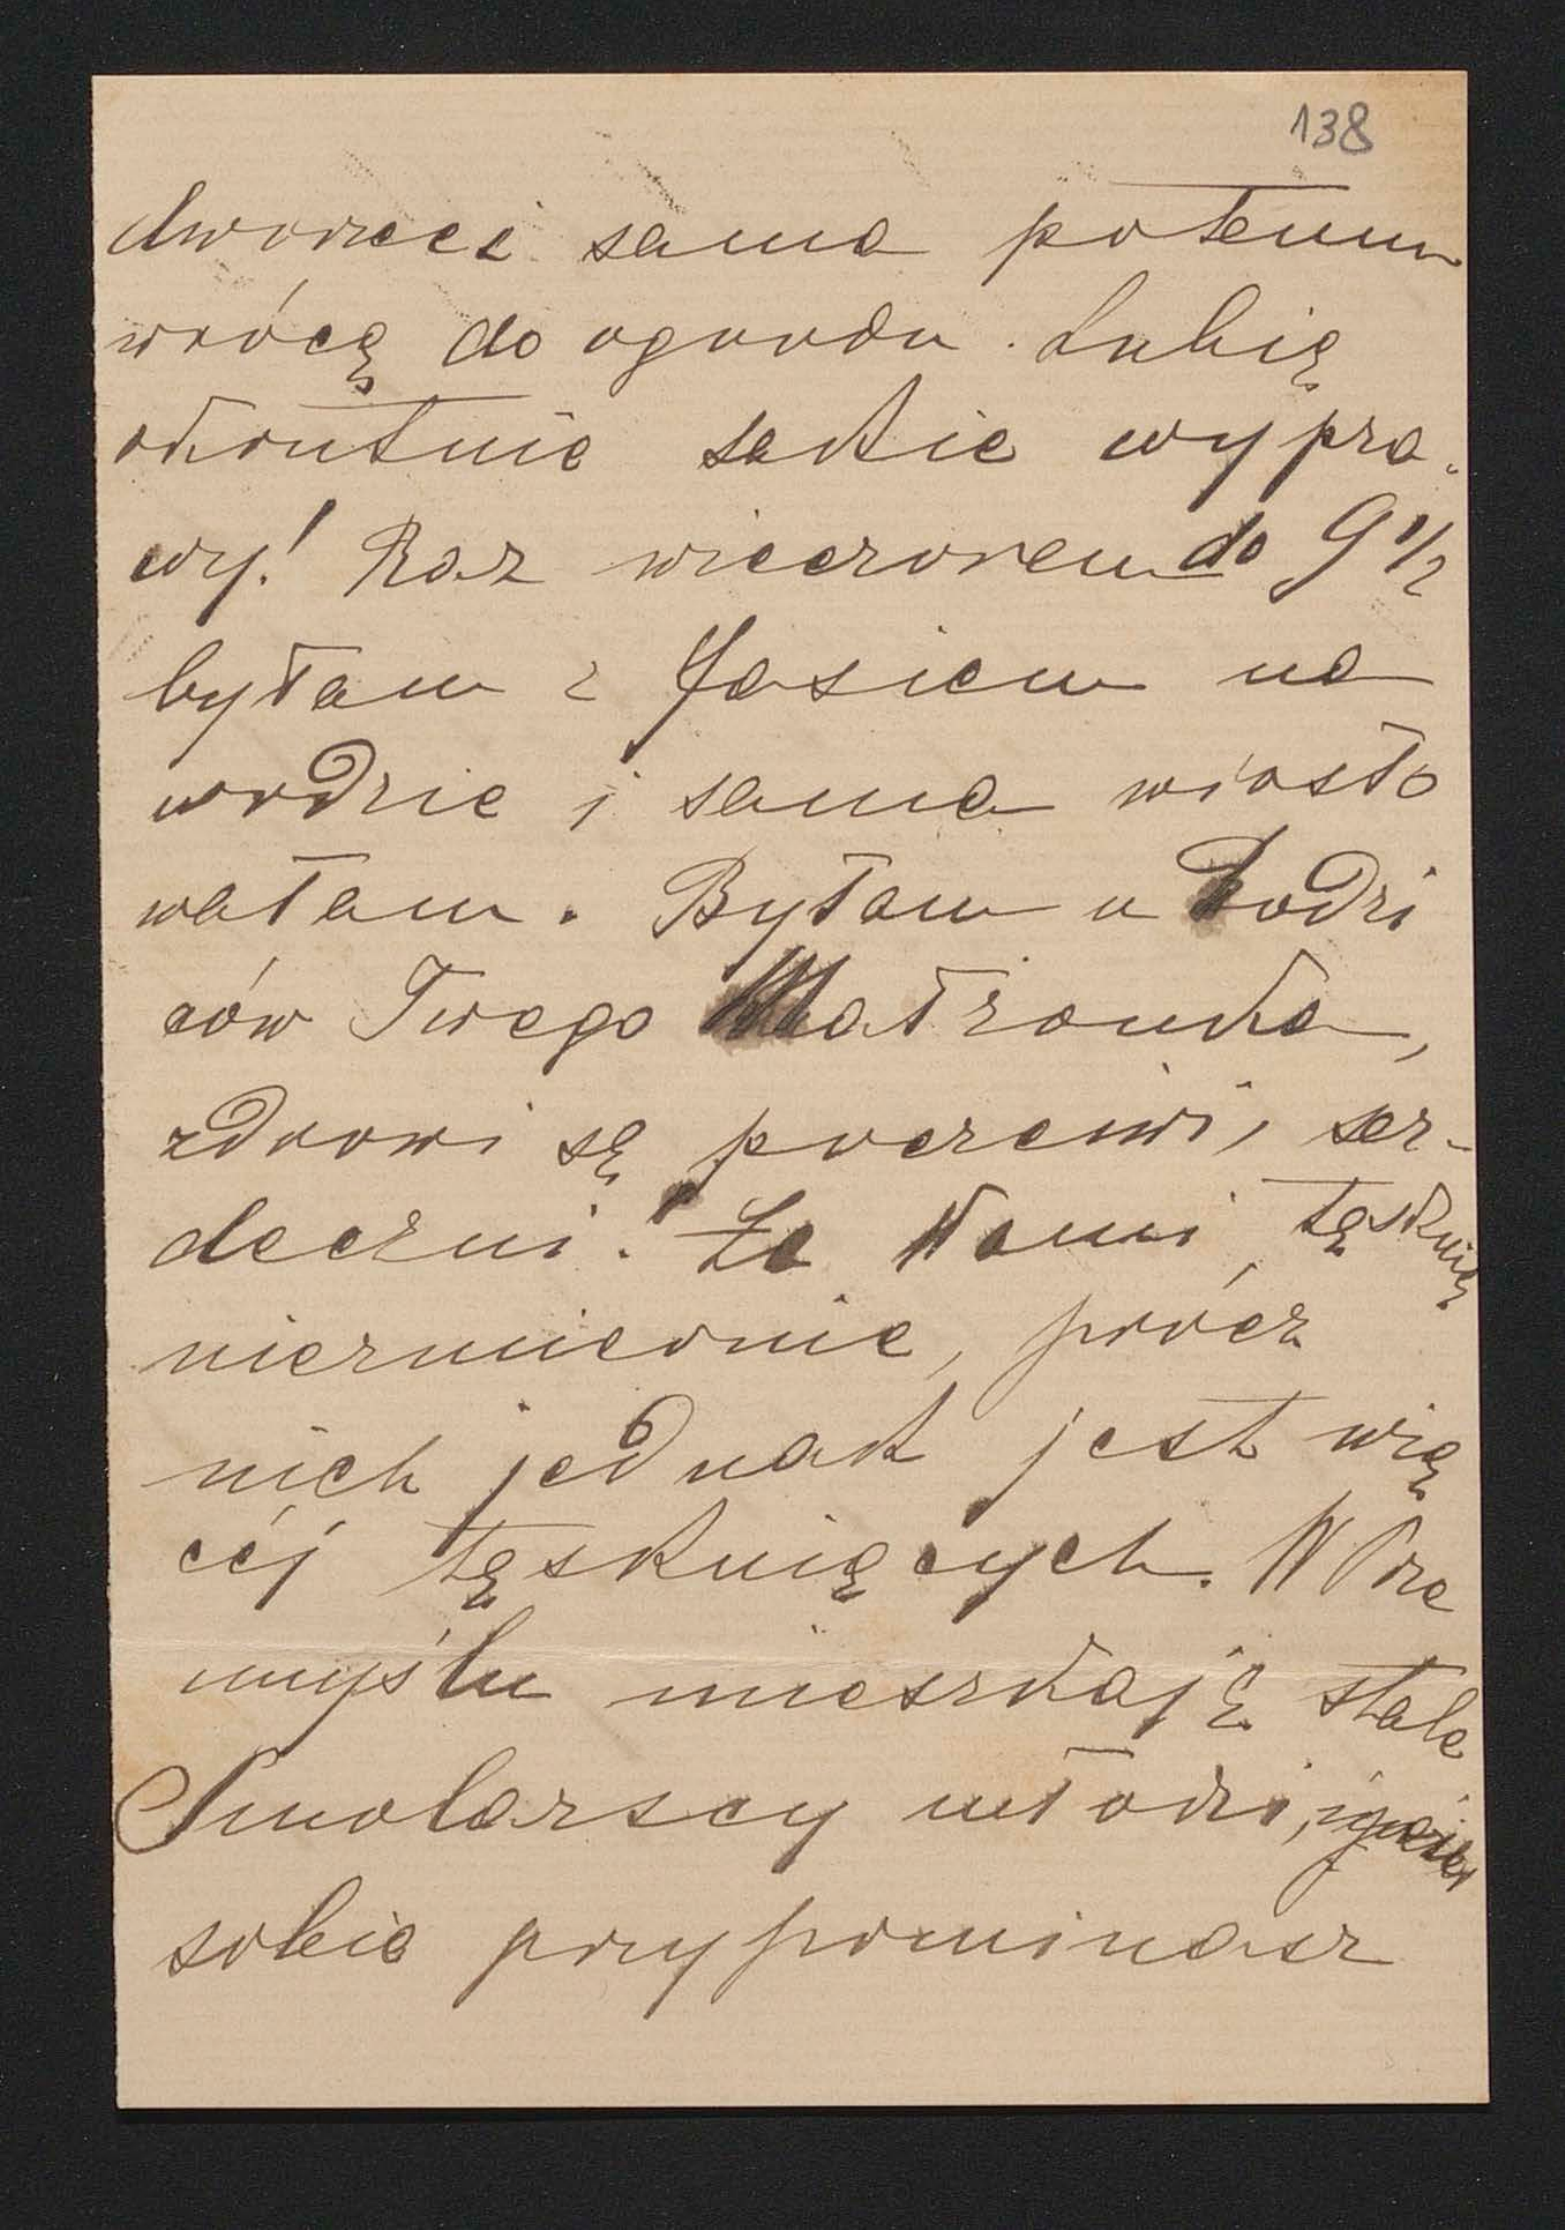 138
dworzec i sama potem
wrócę do ogrodu. Lubię
okrutnie takie wypra-
wy! Raz wieczorem do 9 1/2
byłam z Jasiem na
wodzie i sama wiosło
wałam. Byłam u Rodzi
ców Twego Małżonka,
zdrowi są, poczciwi, ser-
deczni. Za Wami tęsknią
niezmiernie, prócz
nich jednak jest wię
céj tęskniących. W Prze
myślu mieszkają stale
Smolarscy młodzi,
sobie przypominasz